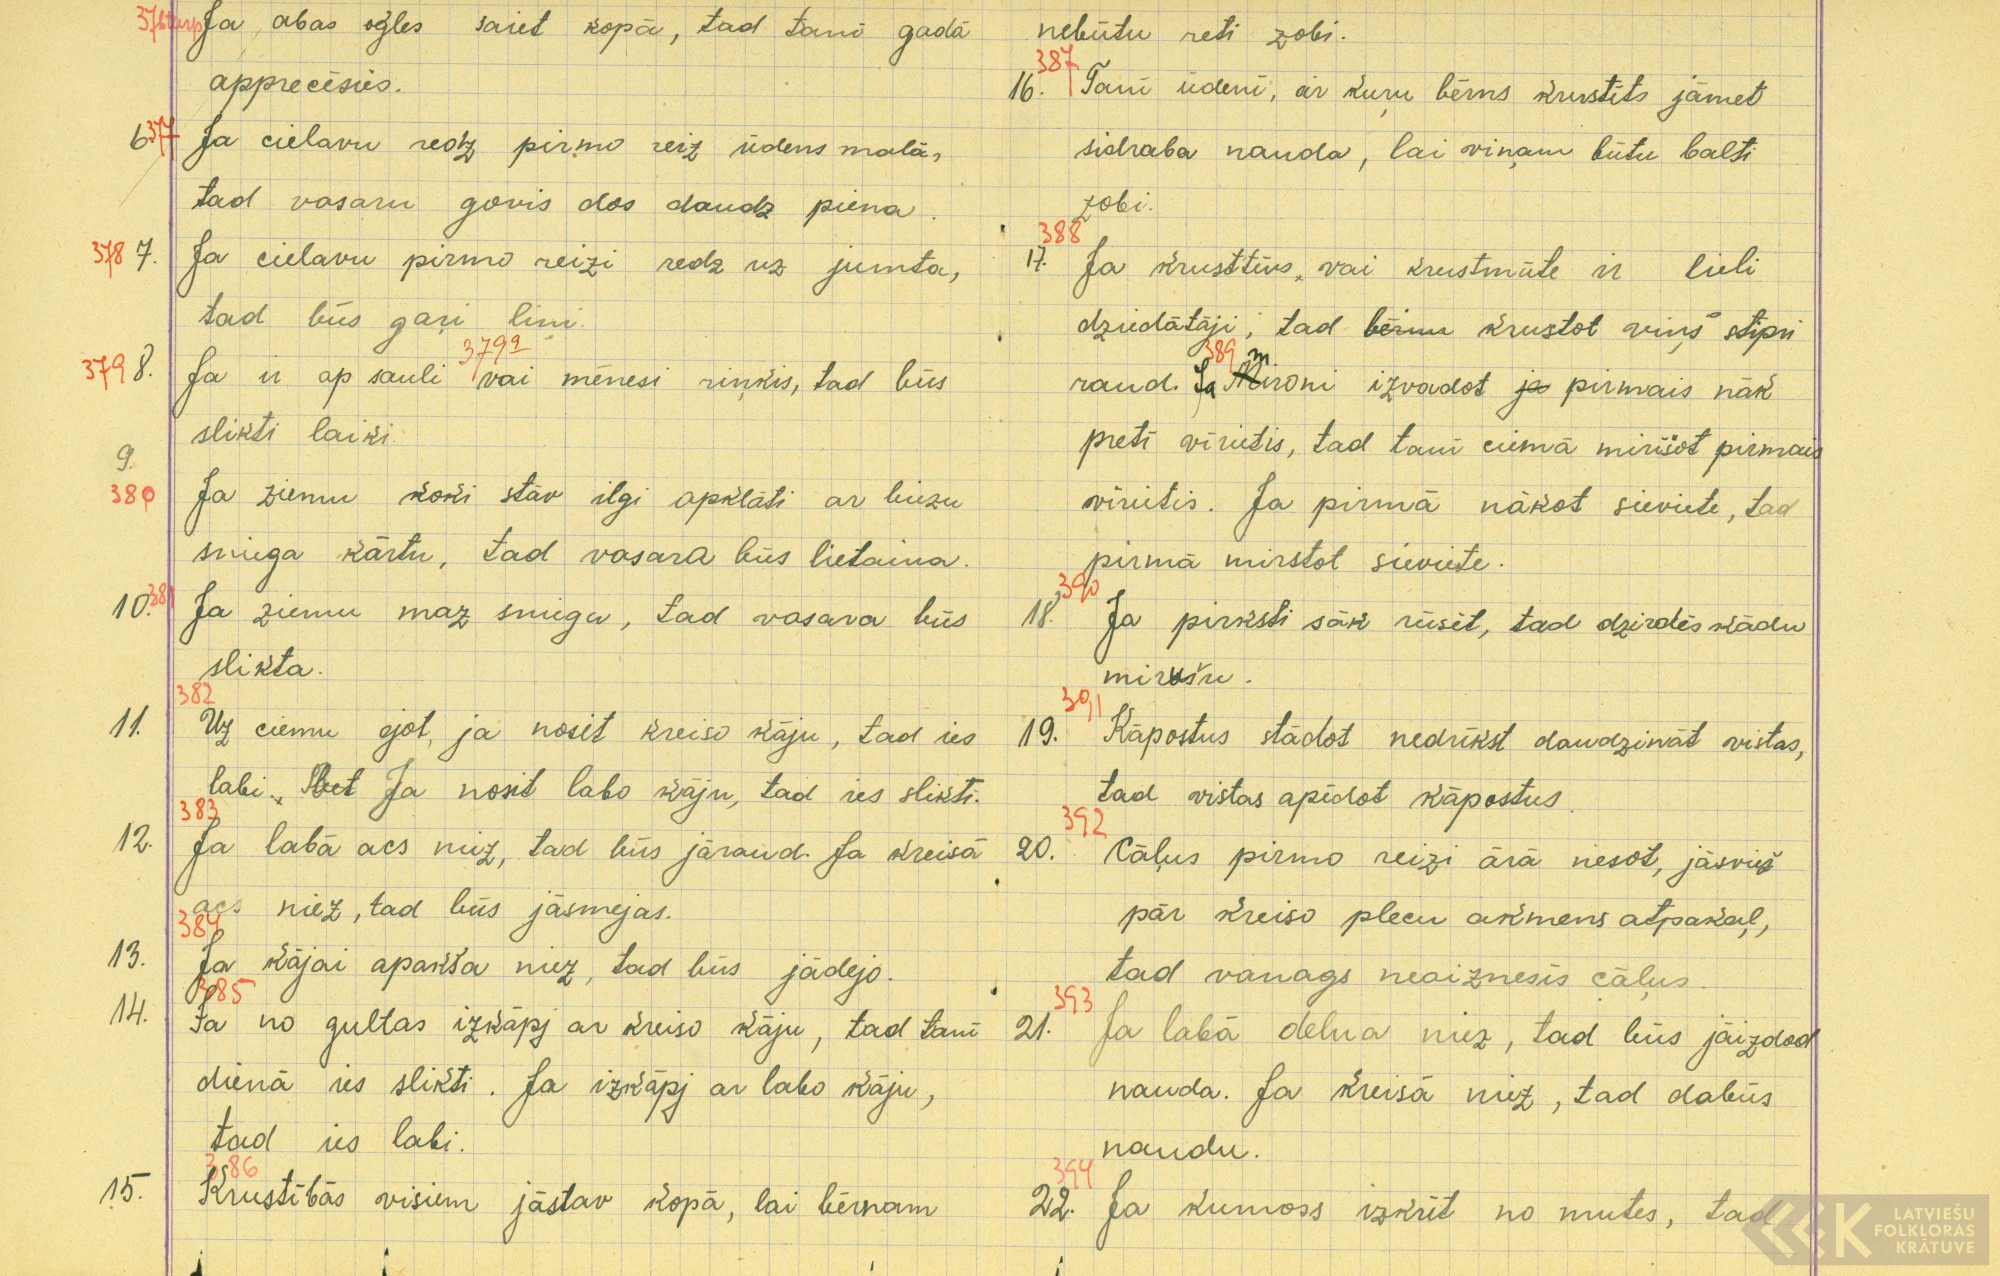 Ja abas ogles saiet kopā, tad tanī gadā
apprecēsies.
6. 377 Ja cielavu redz pirmo reiz ūdens malā,
tad vasaru govis dos daudz piena.
378 7. Ja cielavu pirmo reizi redz uz jumta,
tad būs gaŗi lini.
379a
379 8. Ja ir ap sauli vai mēnesi riņķis, tad būs
slikti laiki.
9.
380 Ja ziemu koki stāv ilgi apklāti ar biezu
sniega kārtu, tad vasara būs lietaina.
10. 381 Ja ziemu maz sniega, tad vasara būs
slikta.
382
11. Uz ciemu ejot, ja nosit kreiso kāju, tad ies
labi., Bet Ja nosit labo kāju, tad ies slikti.
383
12. Ja labā acs niez, tad būs jāraud. Ja kreisā
acs niez, tad būs jāsmejas.
384
13. Ja kājai apakša niez, tad būs jādejo.
385
14. Ja no gultas izkāpj ar kreiso kāju, tad tanī
dienā ies slikti. Ja izkāpj ar labo kāju,
tad ies labi.
386
15. Krustībās visiem jāstav kopā, lai bērnam
nebūtu reti zobi.
387
16. Tanī ūdenī, ar kuŗu bērns krustīts jāmet
sidraba nauda, lai viņam būtu balti
zobi.
388
17. Ja krusttēvs, vai krustmāte ir lieli
dziedātāji, tad bērnu krustot viņš stipri
389 m
raud. Ja Mironi izvadot ja pirmais nāk
pretī vīrietis, tad tanī ciemā miršot pirmais
vīrietis. Ja pirmā nākot sieviete, tad
pirmā mirstot sieviete.
390
18. Ja pirksti sāk rūsēt, tad dzirdēs kādu
mirušu.
391
19. Kāpostus stādot nedrīkst daudzināt vistas,
tad vistas apēdot kāpostus.
392
20. Cāļus pirmo reizi ārā nesot, jāsviež
pār kreiso plecu akmens atpakaļ,
tad vanags neaiznesīs cāļus.
393
21. Ja labā delna niez, tad būs jāizdod
nauda. Ja kreisā niez, tad dabūs
naudu.
394
22. Ja kumoss izkrīt no mutes, tad
LATVIEŠU
FOLKLORAS
KRĀTUVE